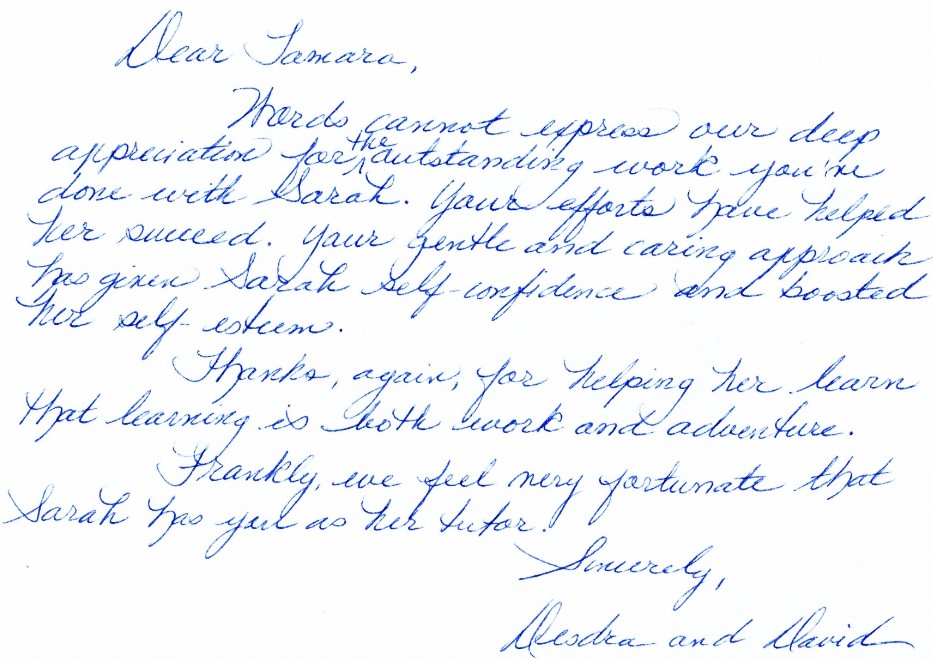 Dear Tamara,
Words cannot express our deep
appreciation for the outstanding work you've
done with Sarah. Your efforts have helped
her succeed. Your gentle and caring approach
has given Sarah self-confidence and boosted
her self-esteem.
Thanks, again, for helping her learn
that learning is both work and adventure.
Frankly, we feel very fortunate that
Sarah has you as her tutor.
Sincerely,
Desdra and David